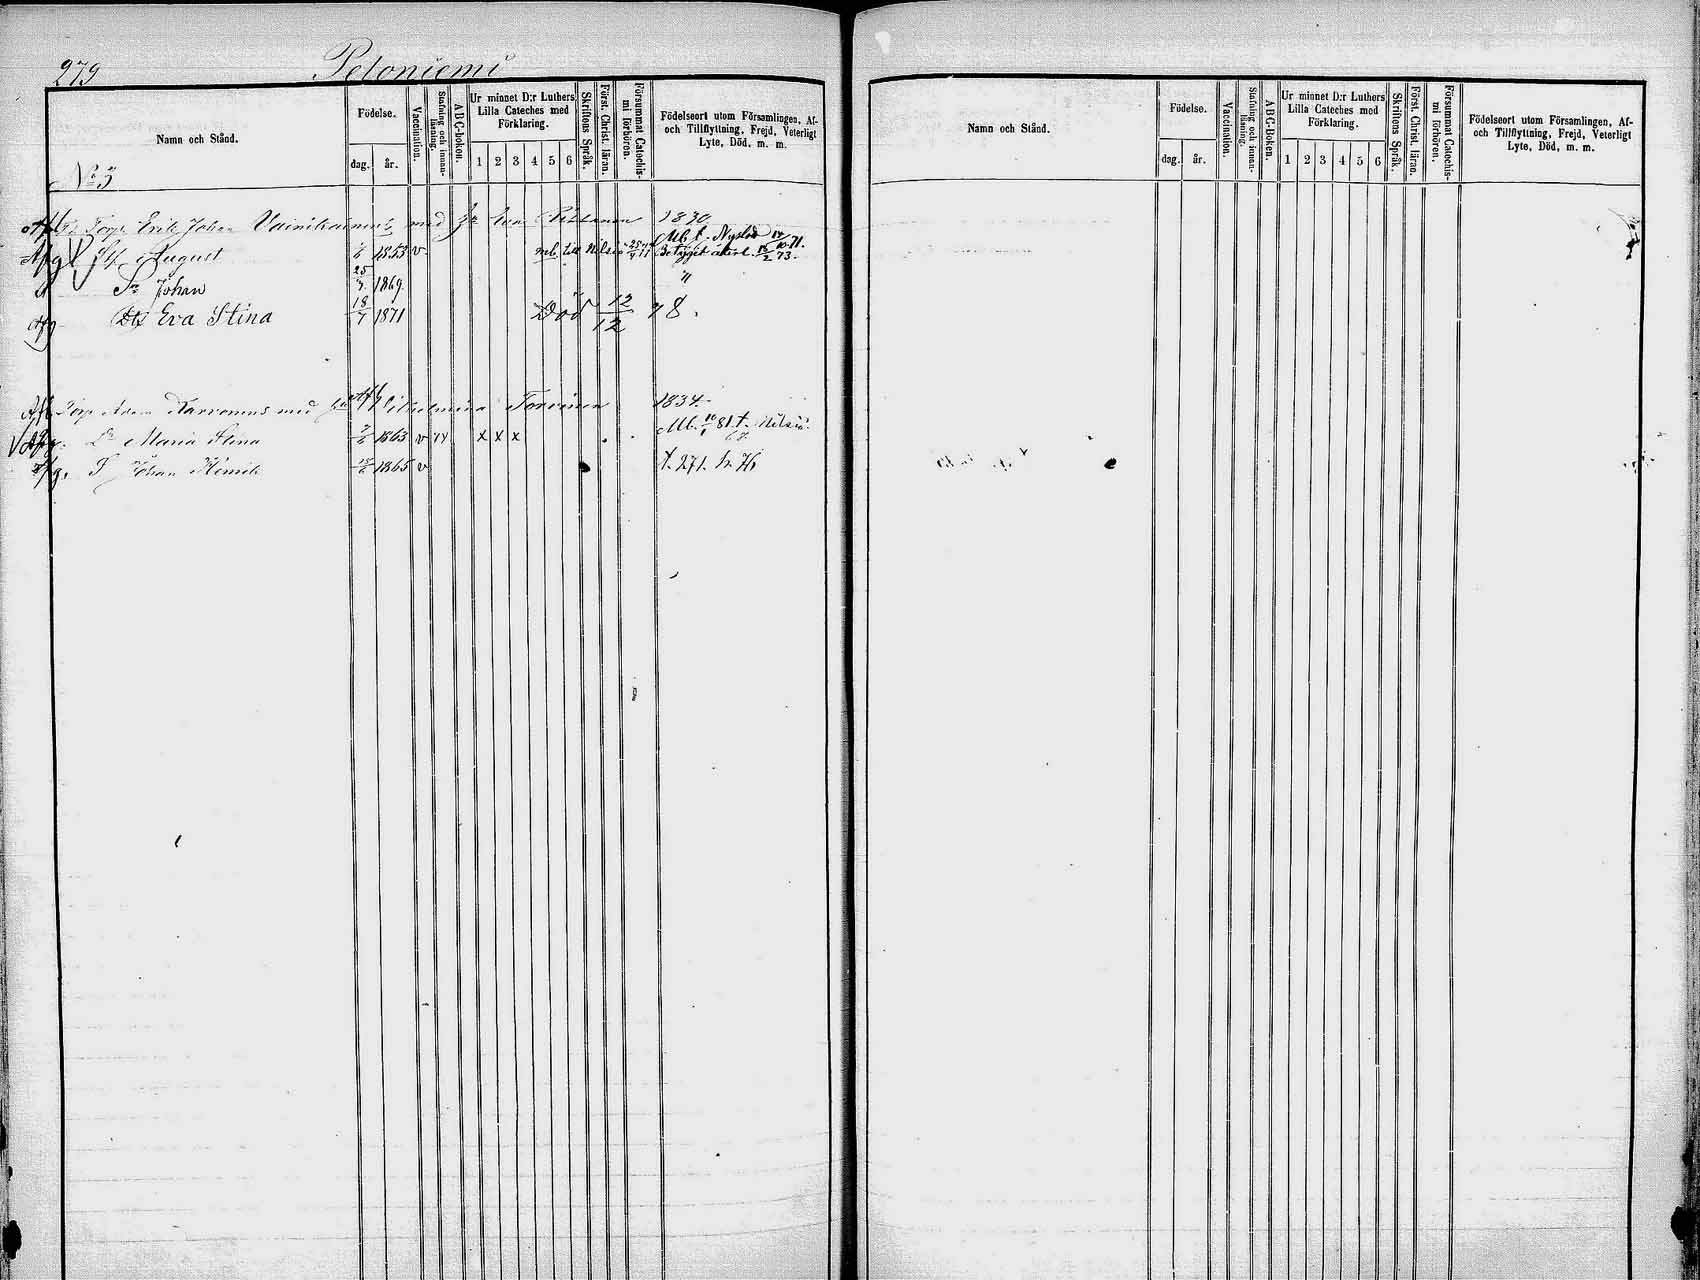 279
Peloniemi
Namn och Stånd.
Födelse.
dag.
år.
Vaccination.
Stafning och innan-
läsning.
ABC-boken.
Ur minnet D:r Luthers
Lilla Cateches med
Förklaring.
1 2 3 4 5 6
Skriftens Språk.
Först. Christ. läran.
Försummat Catechis-
mi förhören.
Födelseort utom Församlingen, Af-
och Tillflyttning, Frejd, Veterligt
Lyte, Död, m. m.
No 3
Torp Erik Johan med Eva 1830
Mb. t. Nyslo 71.
Afg August 1853 v mb till Nilsiä Betyget återl. 73.
Sn Johan 25 1869 "
Afg Dtr Eva Stina 18 1871 Död 12/12 78.
Afg Torp Adam Karvonens med Vilhelmina Torvinen 1834
Afg. Dr Maria Stina 1863 v x x x Mb. 81. t. Nilsiä
Afg. S Johan Henrik 1865 v t. 271.
Namn och Stånd.
Födelse.
dag.
år.
Vaccination.
Stafning och innan-
läsning.
ABC-boken.
Ur minnet D:r Luthers
Lilla Cateches med
Förklaring.
1 2 3 4 5 6
Skriftens Språk.
Först. Christ. läran.
Försummat Catechis-
mi förhören.
Födelseort utom Församlingen, Af-
och Tillflyttning, Frejd, Veterligt
Lyte, Död, m. m.